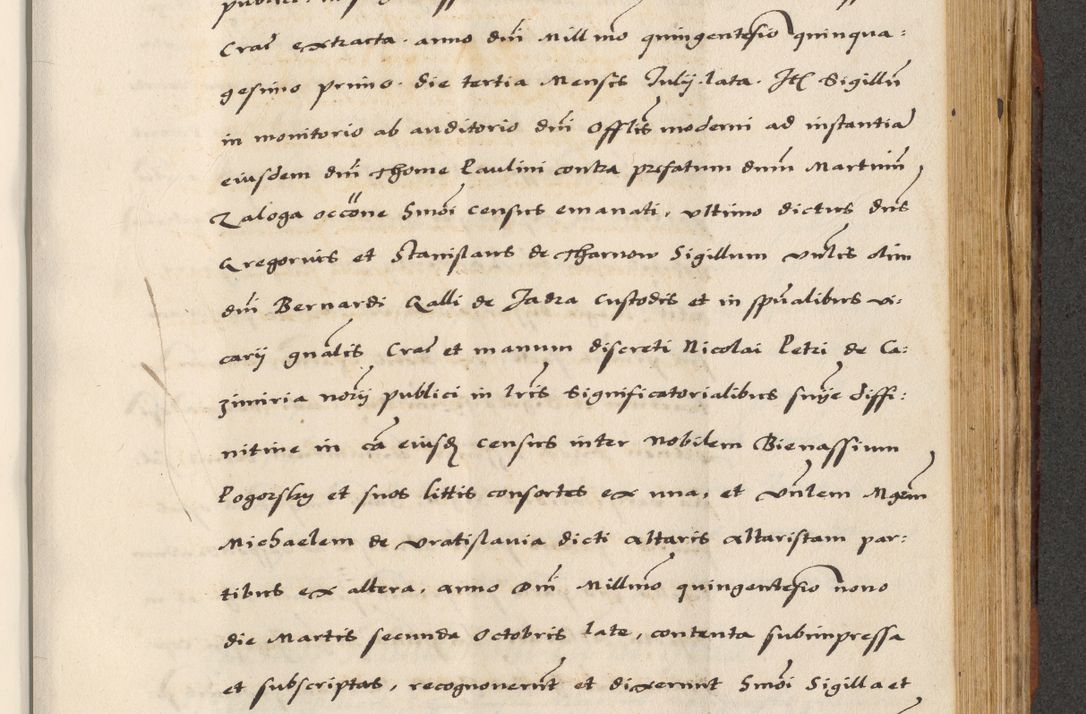 Crac̄ extracta. anno dn̄i Millmo quingentesio quinqua:
gesimo primo. die tertia Mensis Julij. lata. Itē Sigillū
in monitorio ab auditorio dn̄i Offlīs moderni ad instantia
eiusdem dn̄i Thome Paulini contra prefatum dnm̄ Martinū
Zaloga occōne Smōi census emanati, ultimo dictus dn̄s
Gregorius et Stanislaus de Tharnow Sigillum vn̄lis olim
dn̄i Bernardi Galli de Jadra Custodis et in spūalibus vi:
carij gn̄alis Crac̄ et manum discreti Nicolai Petri de Ca:
zimiria norīj publici in lr̄is Significatorialibus sn̄ije diffi:
nitiue in cā eiusd census inter Nobilem Bienassium
Pogorsky et suos littis consortes ex una, et vn̄lem Mgrm
Michaelem de vratislauia dicti altaris altaristam par:
tibus ex altera, anno Dn̄i Millmo quingentesio nono
die Martis secunda Octobris late, contenta subimpressa
et subscriptas, recognouerūt et dixerunt Smōi Sigilla et